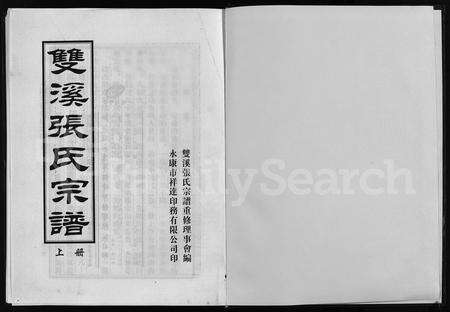 雙溪張氏宗譜
上册
雙溪張氏宗譜重修理事會編
永康市祥達印務有限公司印
FamilySearch